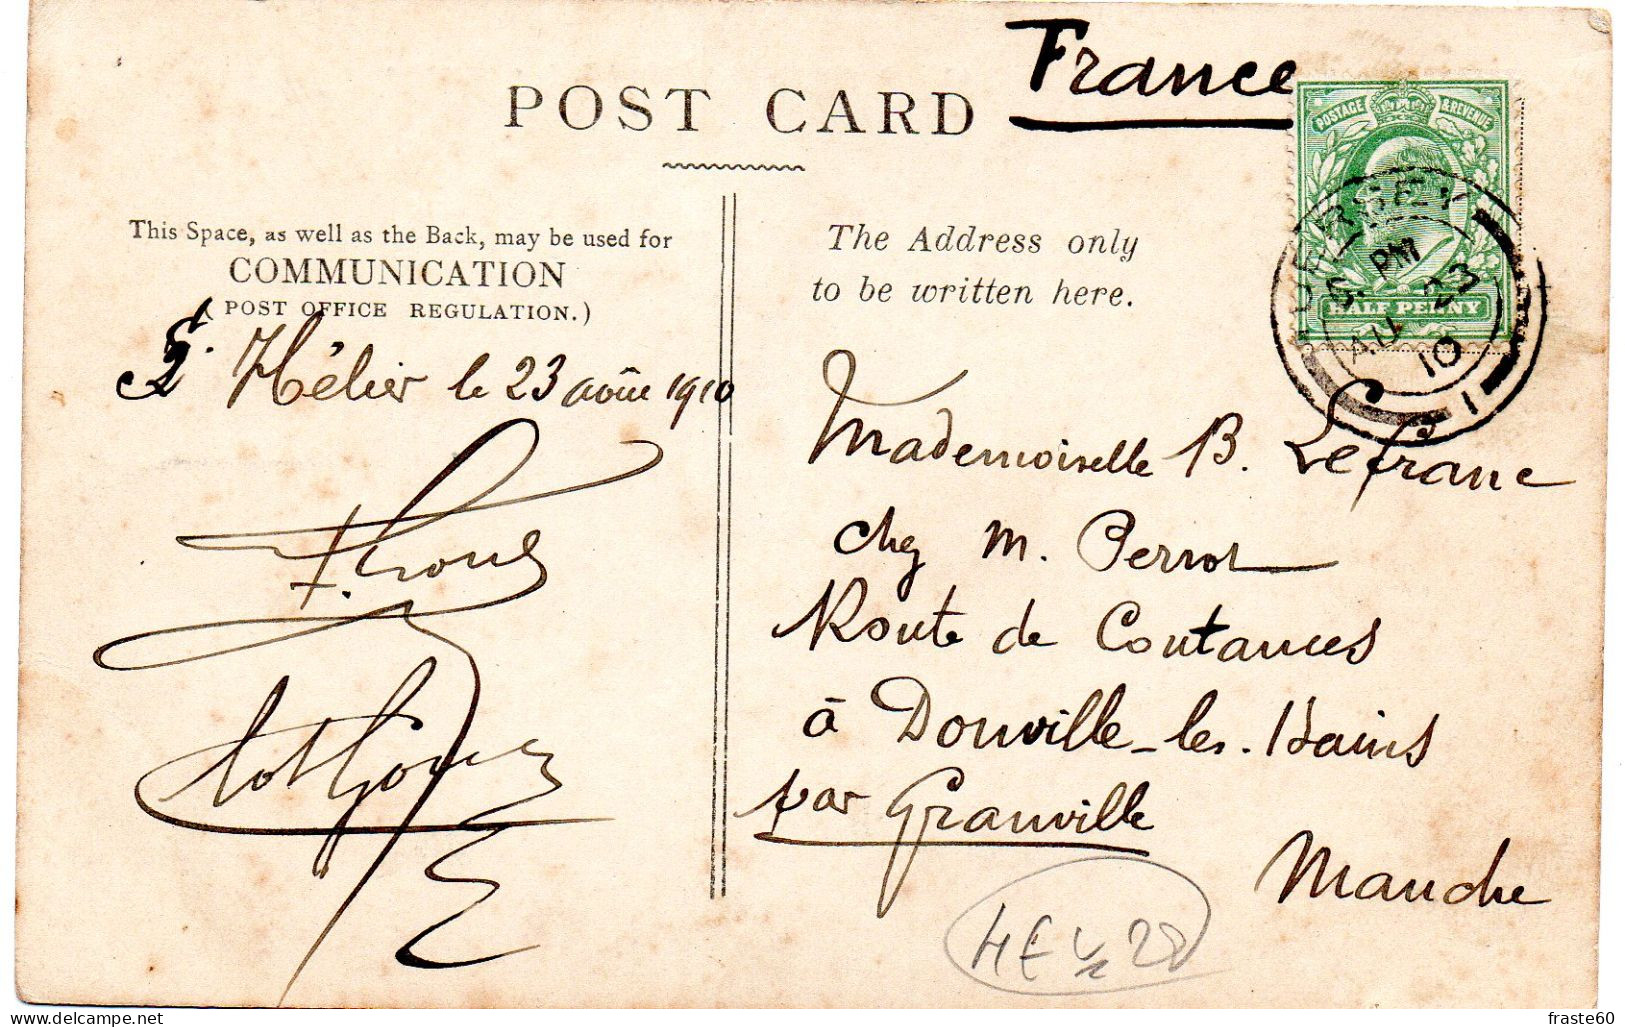 France
POST CARD
POSTAGE & REVENUE
HALF PENNY
JERSEY
PM
AU 23
10
This Space, as well as the Back, may be used for
COMMUNICATION
(POST OFFICE REGULATION.)
St. Hélier le 23 août 1910
The Address only
to be written here.
Mademoiselle B. Lefranc
chez M. Perrot
Route de Coutances
à Donville-les-Bains
par Granville
Manche
fraste60